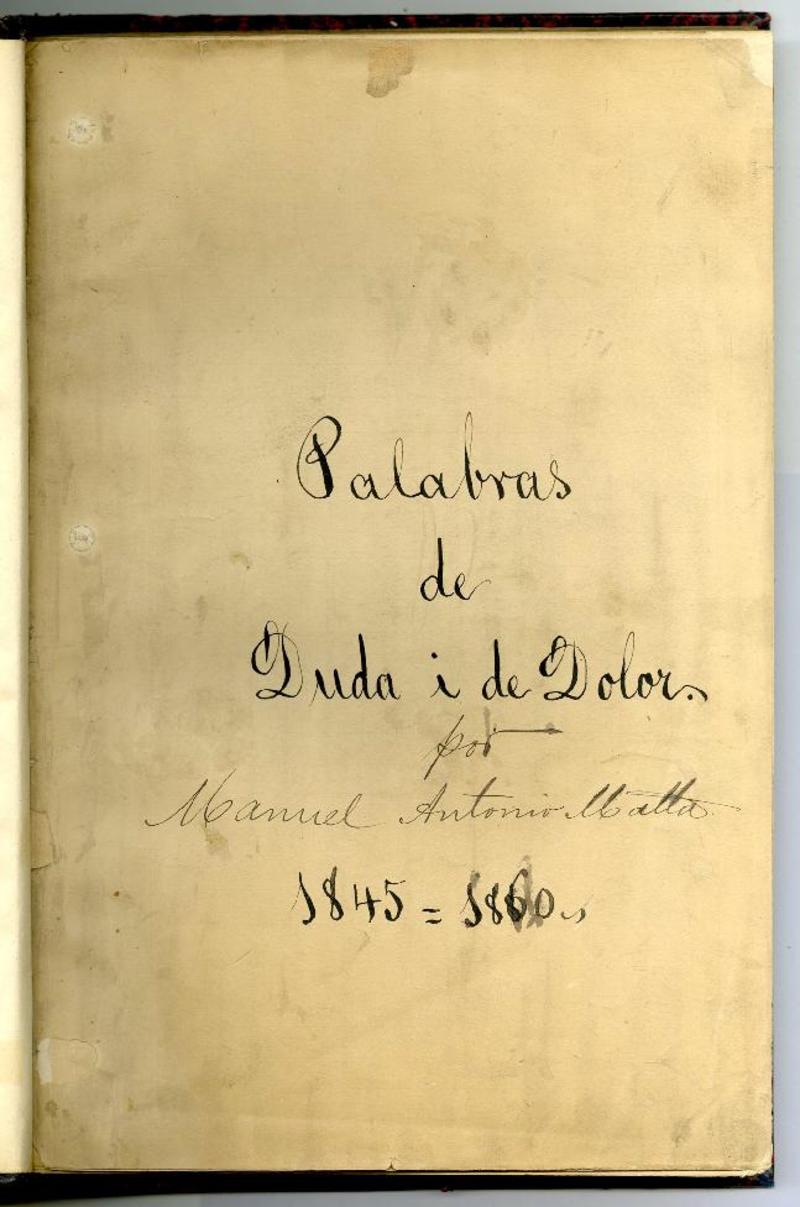 Palabras
de
Duda i de Dolor.
por
Manuel Antonio Matta
1845 = 1860.